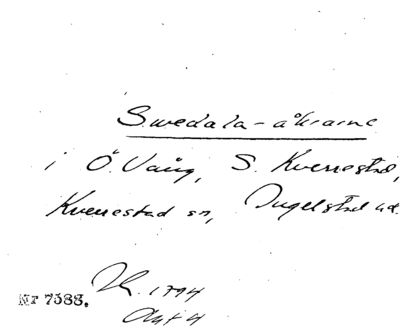 Swedala-åkrarne
i Ö. Vång, S. Kverrestad,
Kverrestad sn, Ingelstad hd.
Nr 7588. 1794
Akt 4